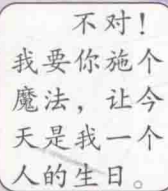 不对！
我要你施个
魔法，让今
天是我一个
人的生日。